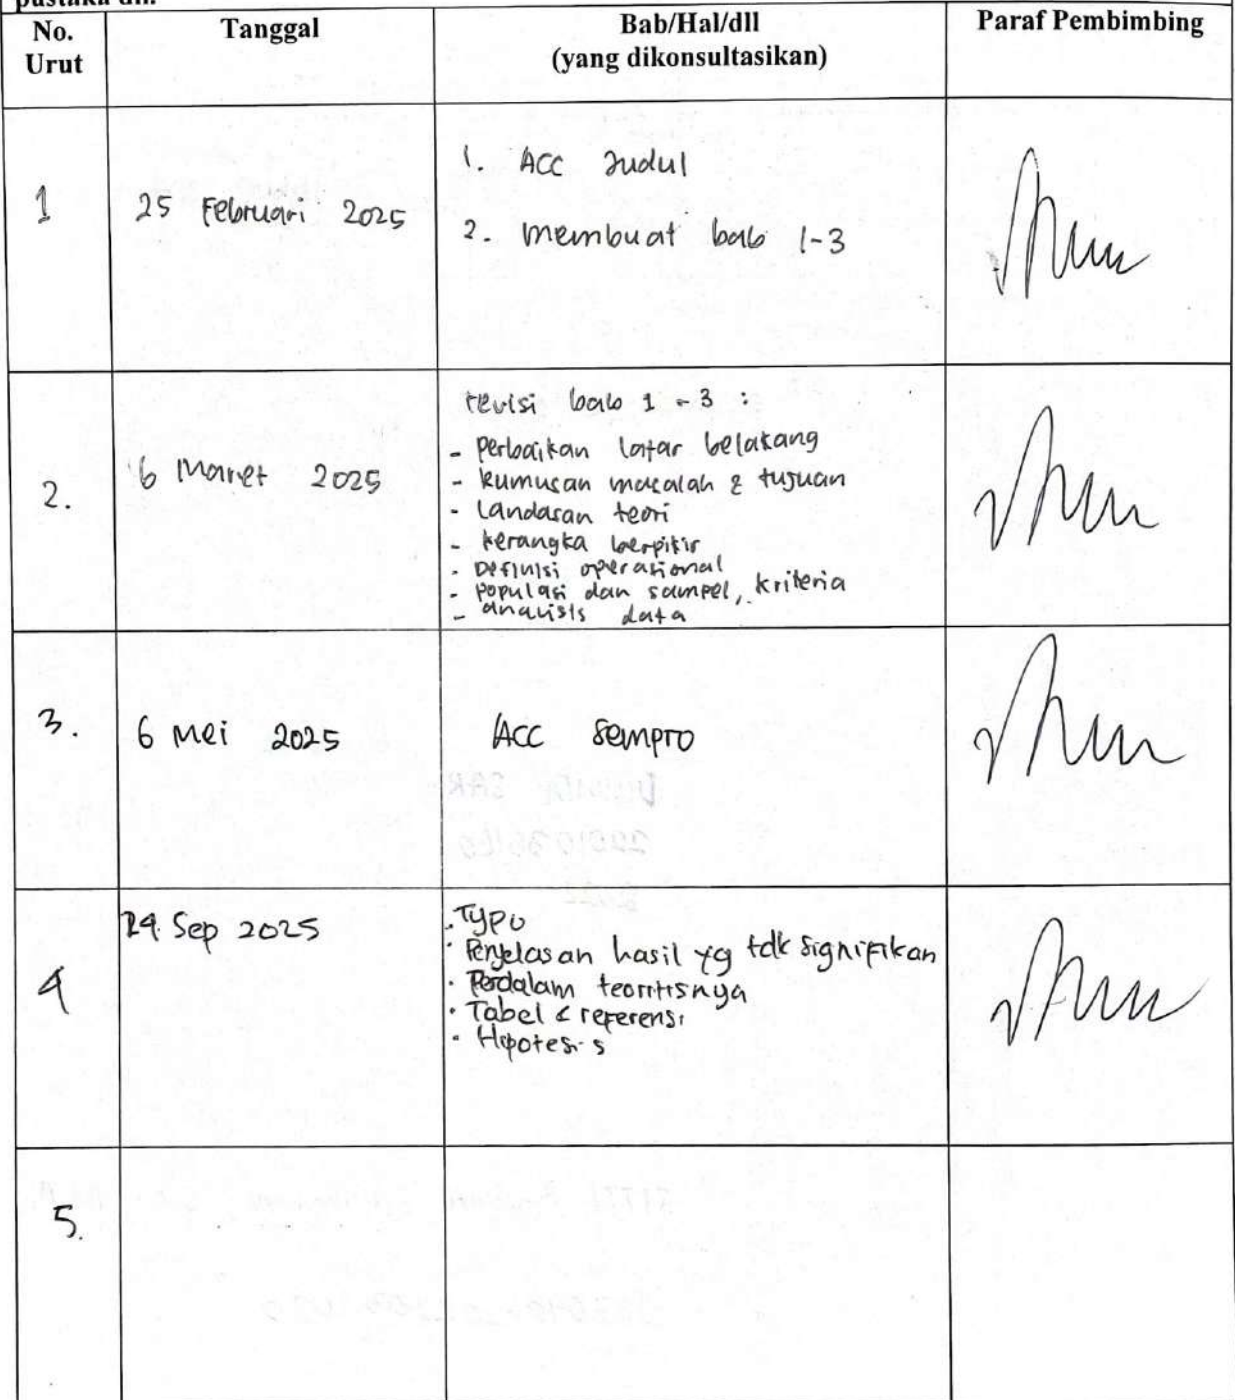 No. Urut
Tanggal
Bab/Hal/dll
(yang dikonsultasikan)
Paraf Pembimbing
1
25 Februari 2025
1. ACC Judul
2. membuat bab 1-3
2.
6 Maret 2025
revisi bab 1 - 3 :
- perbaikan latar belakang
- Rumusan masalah & tujuan
- Landasan teori
- kerangka berpikir
- Definisi operasional
- populasi dan sampel, kriteria
- analisis data
3.
6 Mei 2025
ACC Sempro
4
24 Sep 2025
. Typo
. Penjelasan hasil yg tdk signifikan
. Perdalam teoritisnya
. Tabel & referensi
. Hipotesis
5.